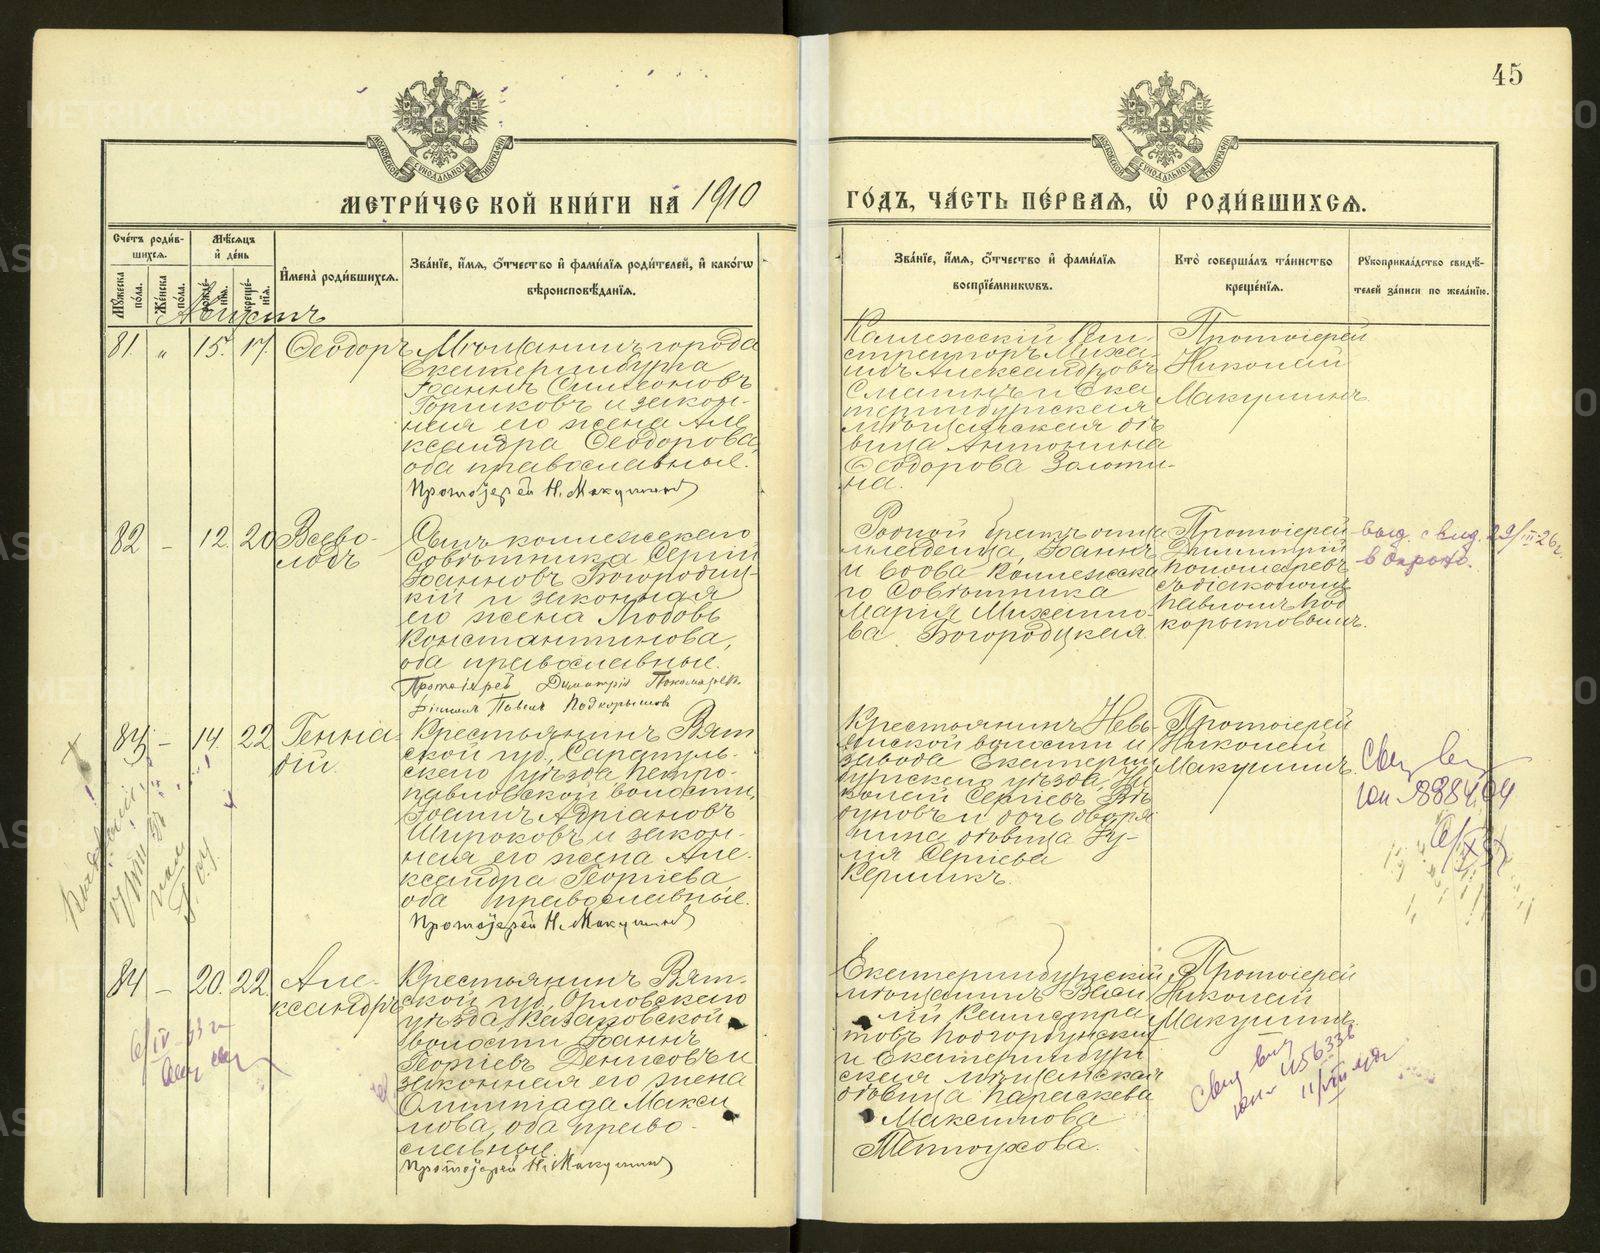 45
МЕТРИ́ЧЕСКОЙ КНИ́ГИ НА̀ 1910
ГО́ДЪ, ЧА́СТЬ ПЕ́РВАѦ, Ѡ҆ РОДИ́ВШИХСѦ.
Сче́тъ роди́в-
шихсѧ.
Мꙋ́жеска по́ла.
Же́нска по́ла.
Мѣ́сѧцъ
и҆ де́нь
рожде́-
нїѧ.
креще́-
нїѧ.
И҆мена̀ роди́вшихсѧ.
Зва́нїе, и҆́мѧ, ѻ҆́тчество и҆ фами́лїѧ роди́телей, и҆ како́гѡ
вѣроисповѣ́данїѧ.
Зва́нїе, и҆́мѧ, ѻ҆́тчество и҆ фами́лїѧ
воспрїе́мникѡвъ.
Кто̀ соверша́лъ та́инство
креще́нїѧ.
Рꙋкоприкла́дство свидѣ́-
телей за́писи по жела́нїю.
Августъ
81. „ 15. 17. Ѳеодоръ
Мѣщанинъ города
Екатеринбурга
Іоаннъ Симеоновъ
Горшковъ и закон-
ная его жена Але
ксандра Ѳеодорова,
оба православные.
Протоіерей Н. Макушинъ
Коллежскій Реги
страторъ Миха-
илъ Александровъ
и Ека
теринбургская
мѣщанская дѣ
вица Антонина
Ѳеодорова Золоти-
на.
Протоіерей
Николай
Макушинъ.
82 – 12. 20 Всево-
лодъ
Сынъ коллежскаго
Совѣтника Сергій
Іоанновъ Богородиц-
кій и законная
его жена Любовь
Константинова,
оба православные.
Протоіерей Димитрій Пономаревъ
Діаконъ Павелъ Подкорытовъ
Родной братъ отца
младенца, Іоаннъ
и вдова Коллежска
го Совѣтника
Марія Михаило-
ва Богородицкая
Протоіерей
Димитрій
Пономаревъ
съ діакономъ
Павломъ Под
корытовымъ.
выд. свид. 29/III-26 г.
83 – 14. 22 Генна-
дій.
Крестьянинъ Вят
ской губ., Сарапуль-
скаго уѣзда Петро-
павловской волости,
Іоаннъ Адріановъ
Широковъ и закон-
ная его жена Але-
ксандра Георгіева
оба православные.
Протоіерей Н. Макушинъ
Крестьянинъ Невь-
янской волости и
завода Екатерин
бургскаго уѣзда, Ни
колай Сергіевъ
и дочь дворя
нина дѣвица Ю-
лія Сергіева
Протоіерей
Николай
Макушинъ.
84 – 20. 22. Але-
ксандръ
Крестьянинъ Вят-
ской губ. Орловскаго
уѣзда
волости Іоаннъ
Георгіевъ Денисовъ и
законная его жена
Олимпіада Макси
мова, оба право-
славные.
Протоіерей Н. Макушинъ
Екатеринбургскій
мѣщанинъ Васи
лій
и Екатеринбург
ская мѣщанская
дѣвица Параскева
Максимова
Протоіерей
Николай
Макушинъ.